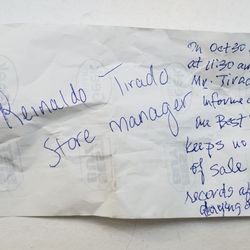 Reinaldo Tirado
Store manager
On Oct 30
at 11:30 am
Mr. Tirado
informed
me Best
keeps no
of sale
records